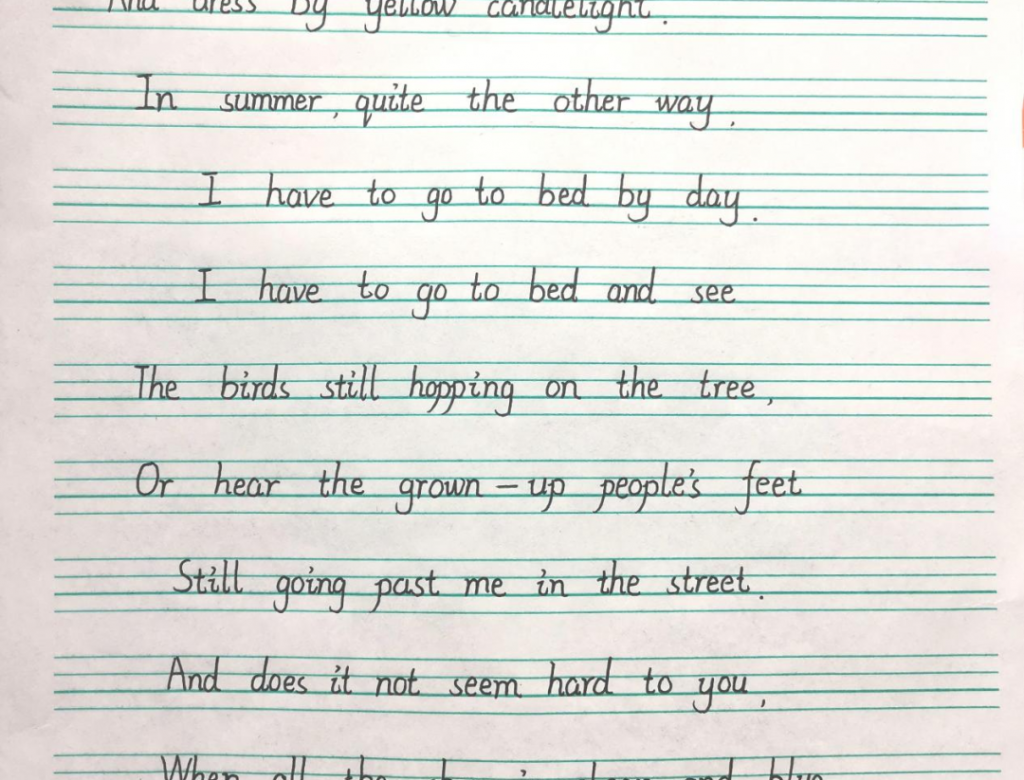 And dress by yellow candlelight.
In summer, quite the other way,
I have to go to bed by day.
I have to go to bed and see
The birds still hopping on the tree,
Or hear the grown-up people's feet
Still going past me in the street.
And does it not seem hard to you,
When all the sky is clear and blue